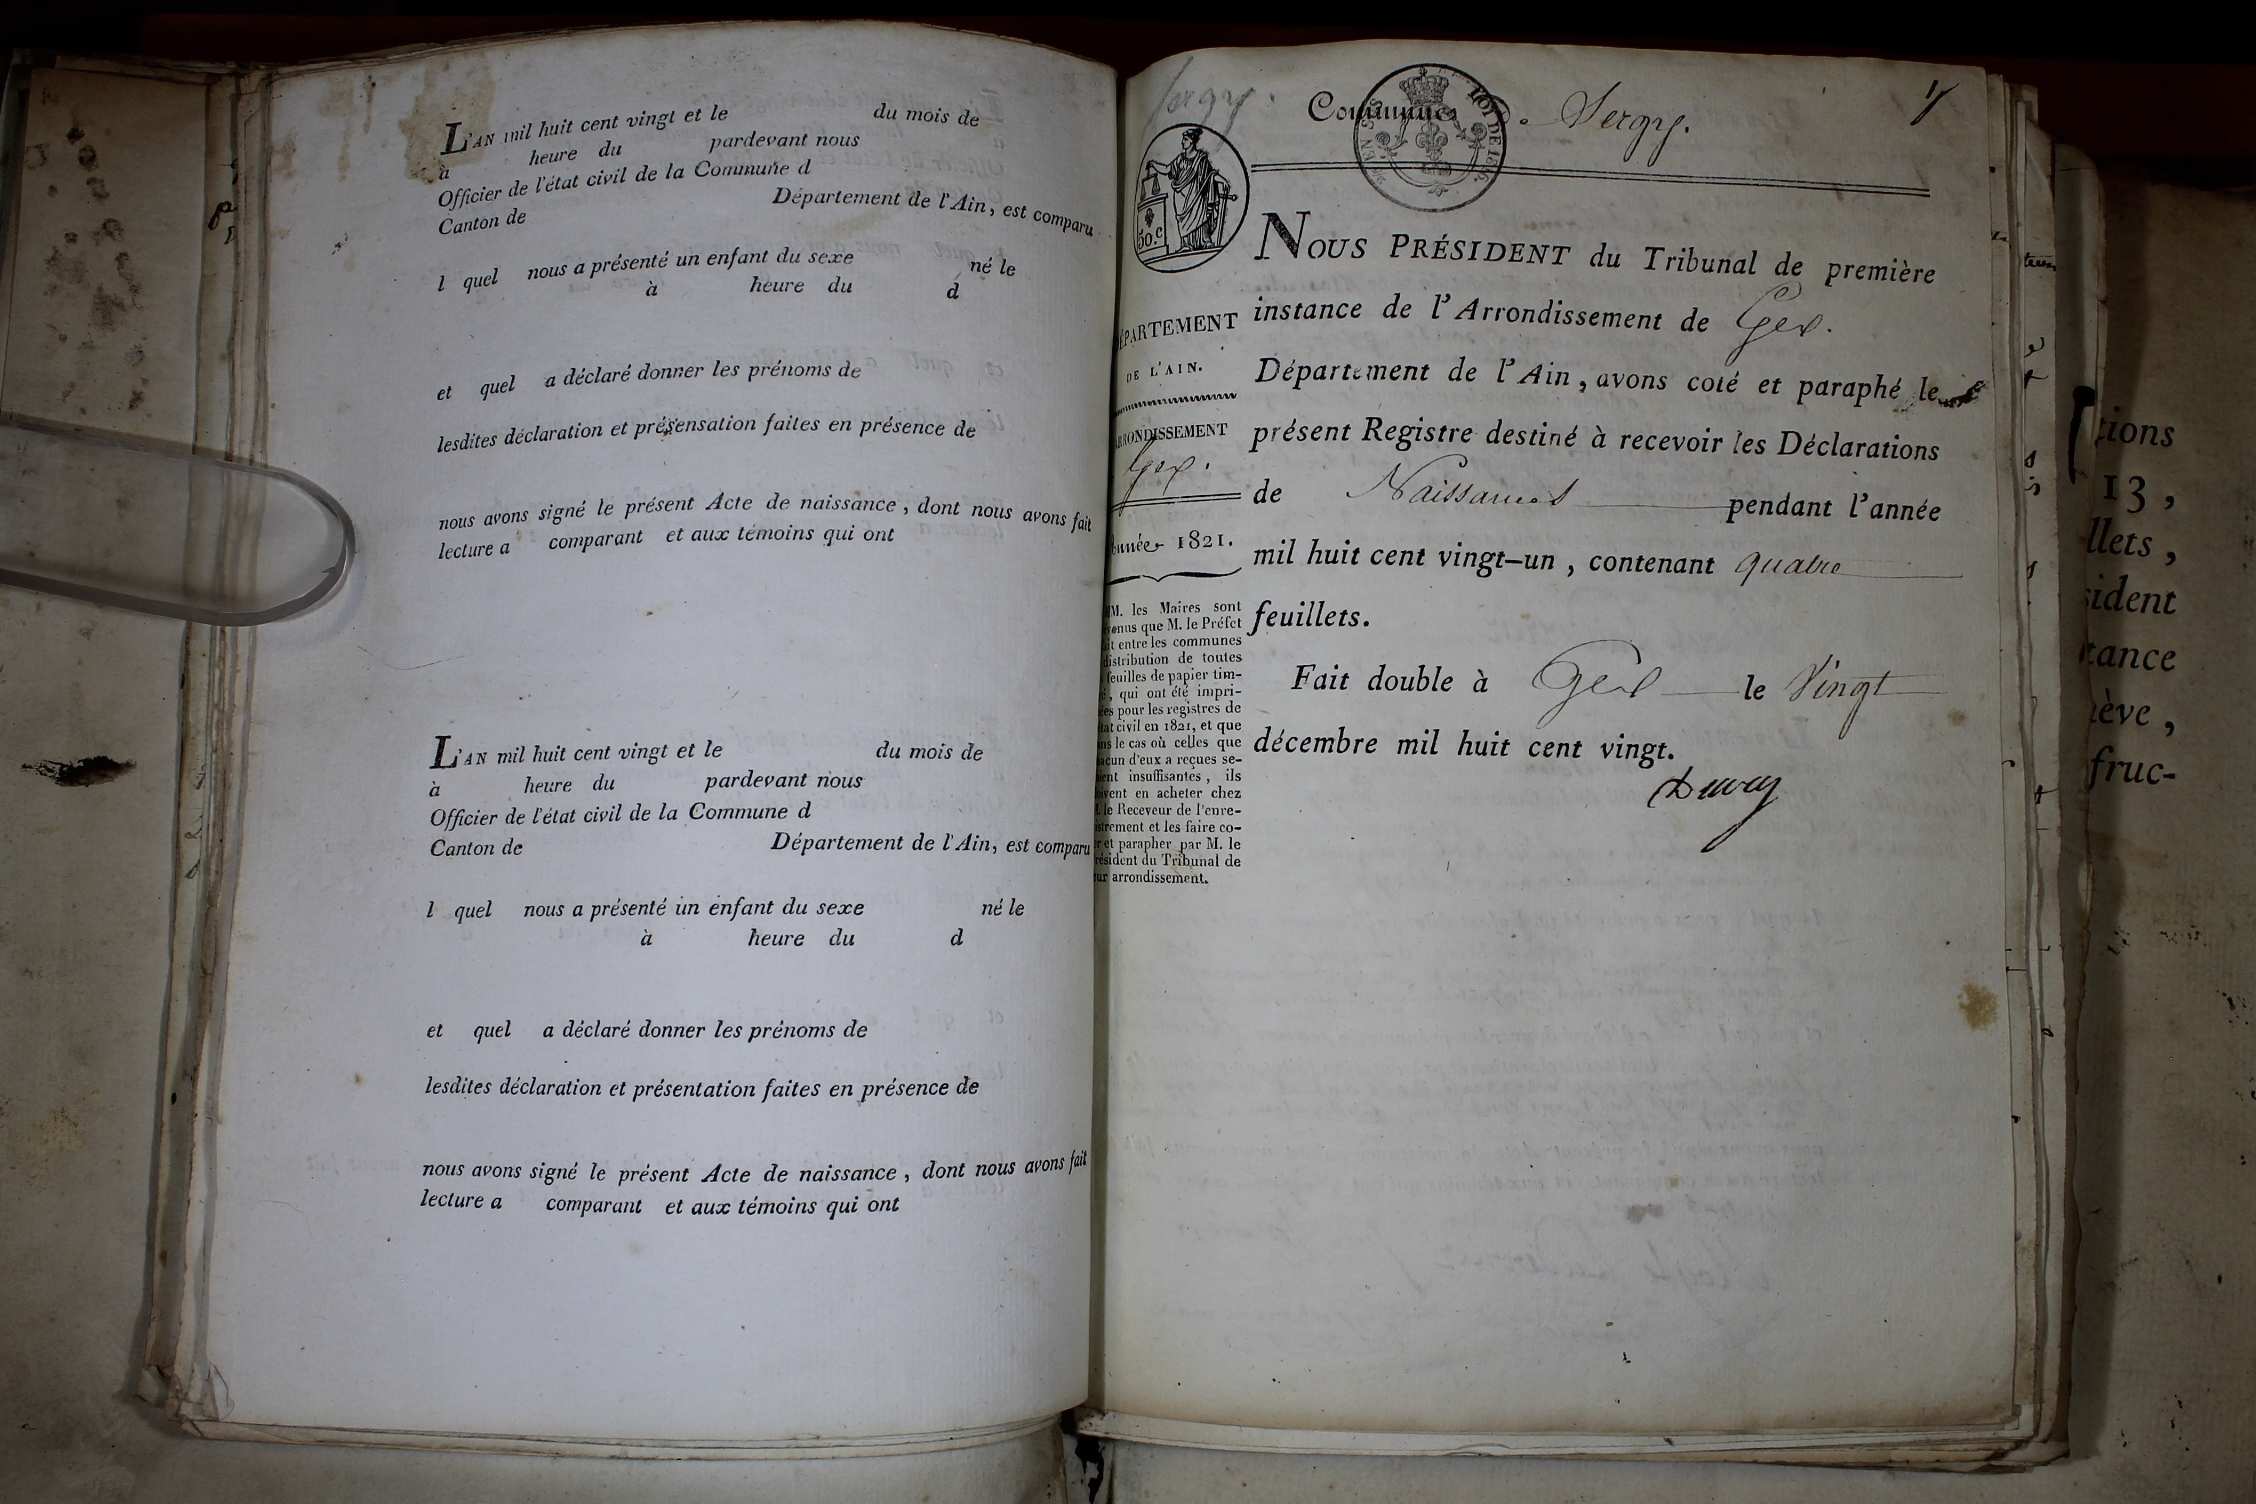 L'AN mil huit cent vingt et le du mois de
à heure du pardevant nous
Officier de l'état civil de la Commune d
Canton de Département de l'Ain, est comparu
l quel nous a présenté un enfant du sexe né le
à heure du d
et quel a déclaré donner les prénoms de
lesdites déclaration et présensation faites en présence de
nous avons signé le présent Acte de naissance, dont nous avons fait
lecture a comparant et aux témoins qui ont
L'AN mil huit cent vingt et le du mois de
à heure du pardevant nous
Officier de l'état civil de la Commune d
Canton de Département de l'Ain, est comparu
l quel nous a présenté un enfant du sexe né le
à heure du d
et quel a déclaré donner les prénoms de
lesdites déclaration et présentation faites en présence de
nous avons signé le présent Acte de naissance, dont nous avons fait
lecture a comparant et aux témoins qui ont
Sergy.
Commune Sergy.
ROI DE
50.c
DÉPARTEMENT
DE L'AIN.
ARRONDISSEMENT
Gex.
Année 1821.
MM. les Maires sont
venus que M. le Préfet
fait entre les communes
distribution de toutes
feuilles de papier tim-
, qui ont été impri-
ées pour les registres de
état civil en 1821, et que
ns le cas où celles que
acun d'eux a reçues se-
ient insuffisantes, ils
oivent en acheter chez
M. le Receveur de l'enre-
istrement et les faire co-
er et parapher par M. le
résident du Tribunal de
ur arrondissement.
NOUS PRÉSIDENT du Tribunal de première
instance de l'Arrondissement de Gex.
Département de l'Ain, avons coté et paraphé le
présent Registre destiné à recevoir les Déclarations
de Naissances pendant l'année
mil huit cent vingt-un, contenant quatre
feuillets.
Fait double à Gex le Vingt
décembre mil huit cent vingt.
tions
13,
llets,
sident
tance
nève,
fruc-